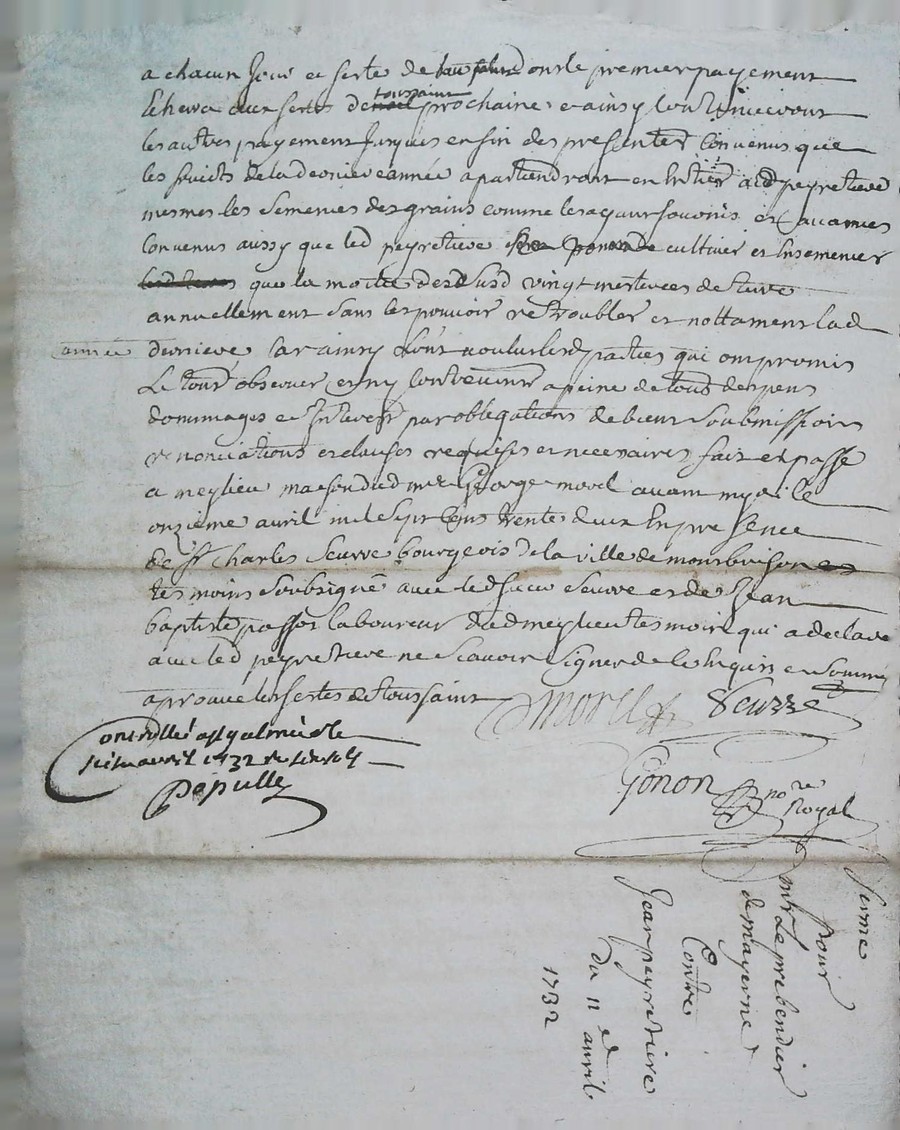 a chacun jour et feste de dont le premier payement
echerra aux festes de toussaint prochaine et ainsy continueront
les autres payement jusques en fin des presentes convenus que
les fruicts de la derniere année apartiendront en entier aud peyretieve
mesmes les semences des grains comme les ayant fournis et
convenus aussy que led peyretieve cultiver et ensemencer
que la moitié desd susd vingt mesterees de terre
annuellement sans les pouvoir retroubler et nottament lad
année
derniere car ainsy lont voulu lesd parties qui ont promis
le tout observer et ny contrevenir a peine de tous despens
dommages et interest par obligations de biens soubmissions
renonciations et clauses requises et necessaires fait et passé
a meylieu maison dud mre George morel avant mydi le
onzieme avril mil sept cens trente deux en presence
de sr Charles Seurre bourgeois de la ville de montbrison
tesmoins soubsigné avec led sieur Seurre et de Jean
baptiste passot laboureur dud meylieu tesmoin qui a declaré
avec led peyretieve ne scavoir signer de ce enquis et sommé
aprouve les festes de toussaint
Morel Seurre
Controllé a st galmier le
avril 1732
Pepulle
Gonon nore Royal
ferme
pour
mr Le prebendier
de mayerne
Contre
Jean peyretieve
du 11e avril
1732